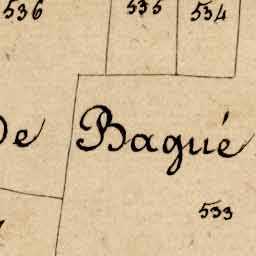 536 535 534
De Bagué
533